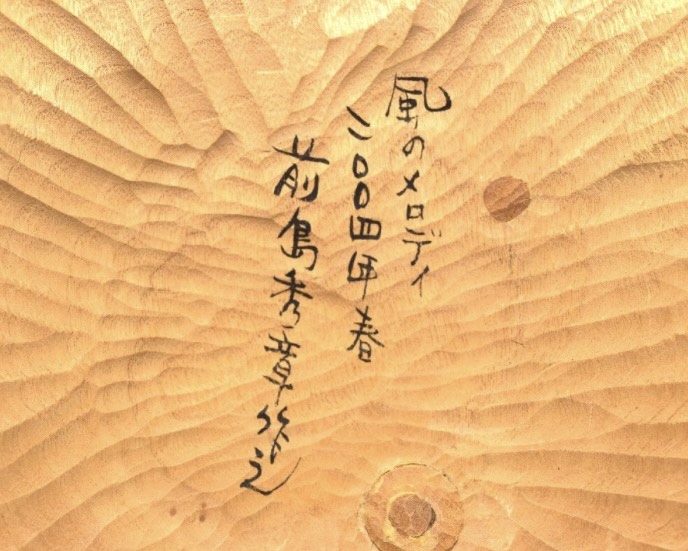 風のメロディ
二〇〇四年春
前島秀章作之